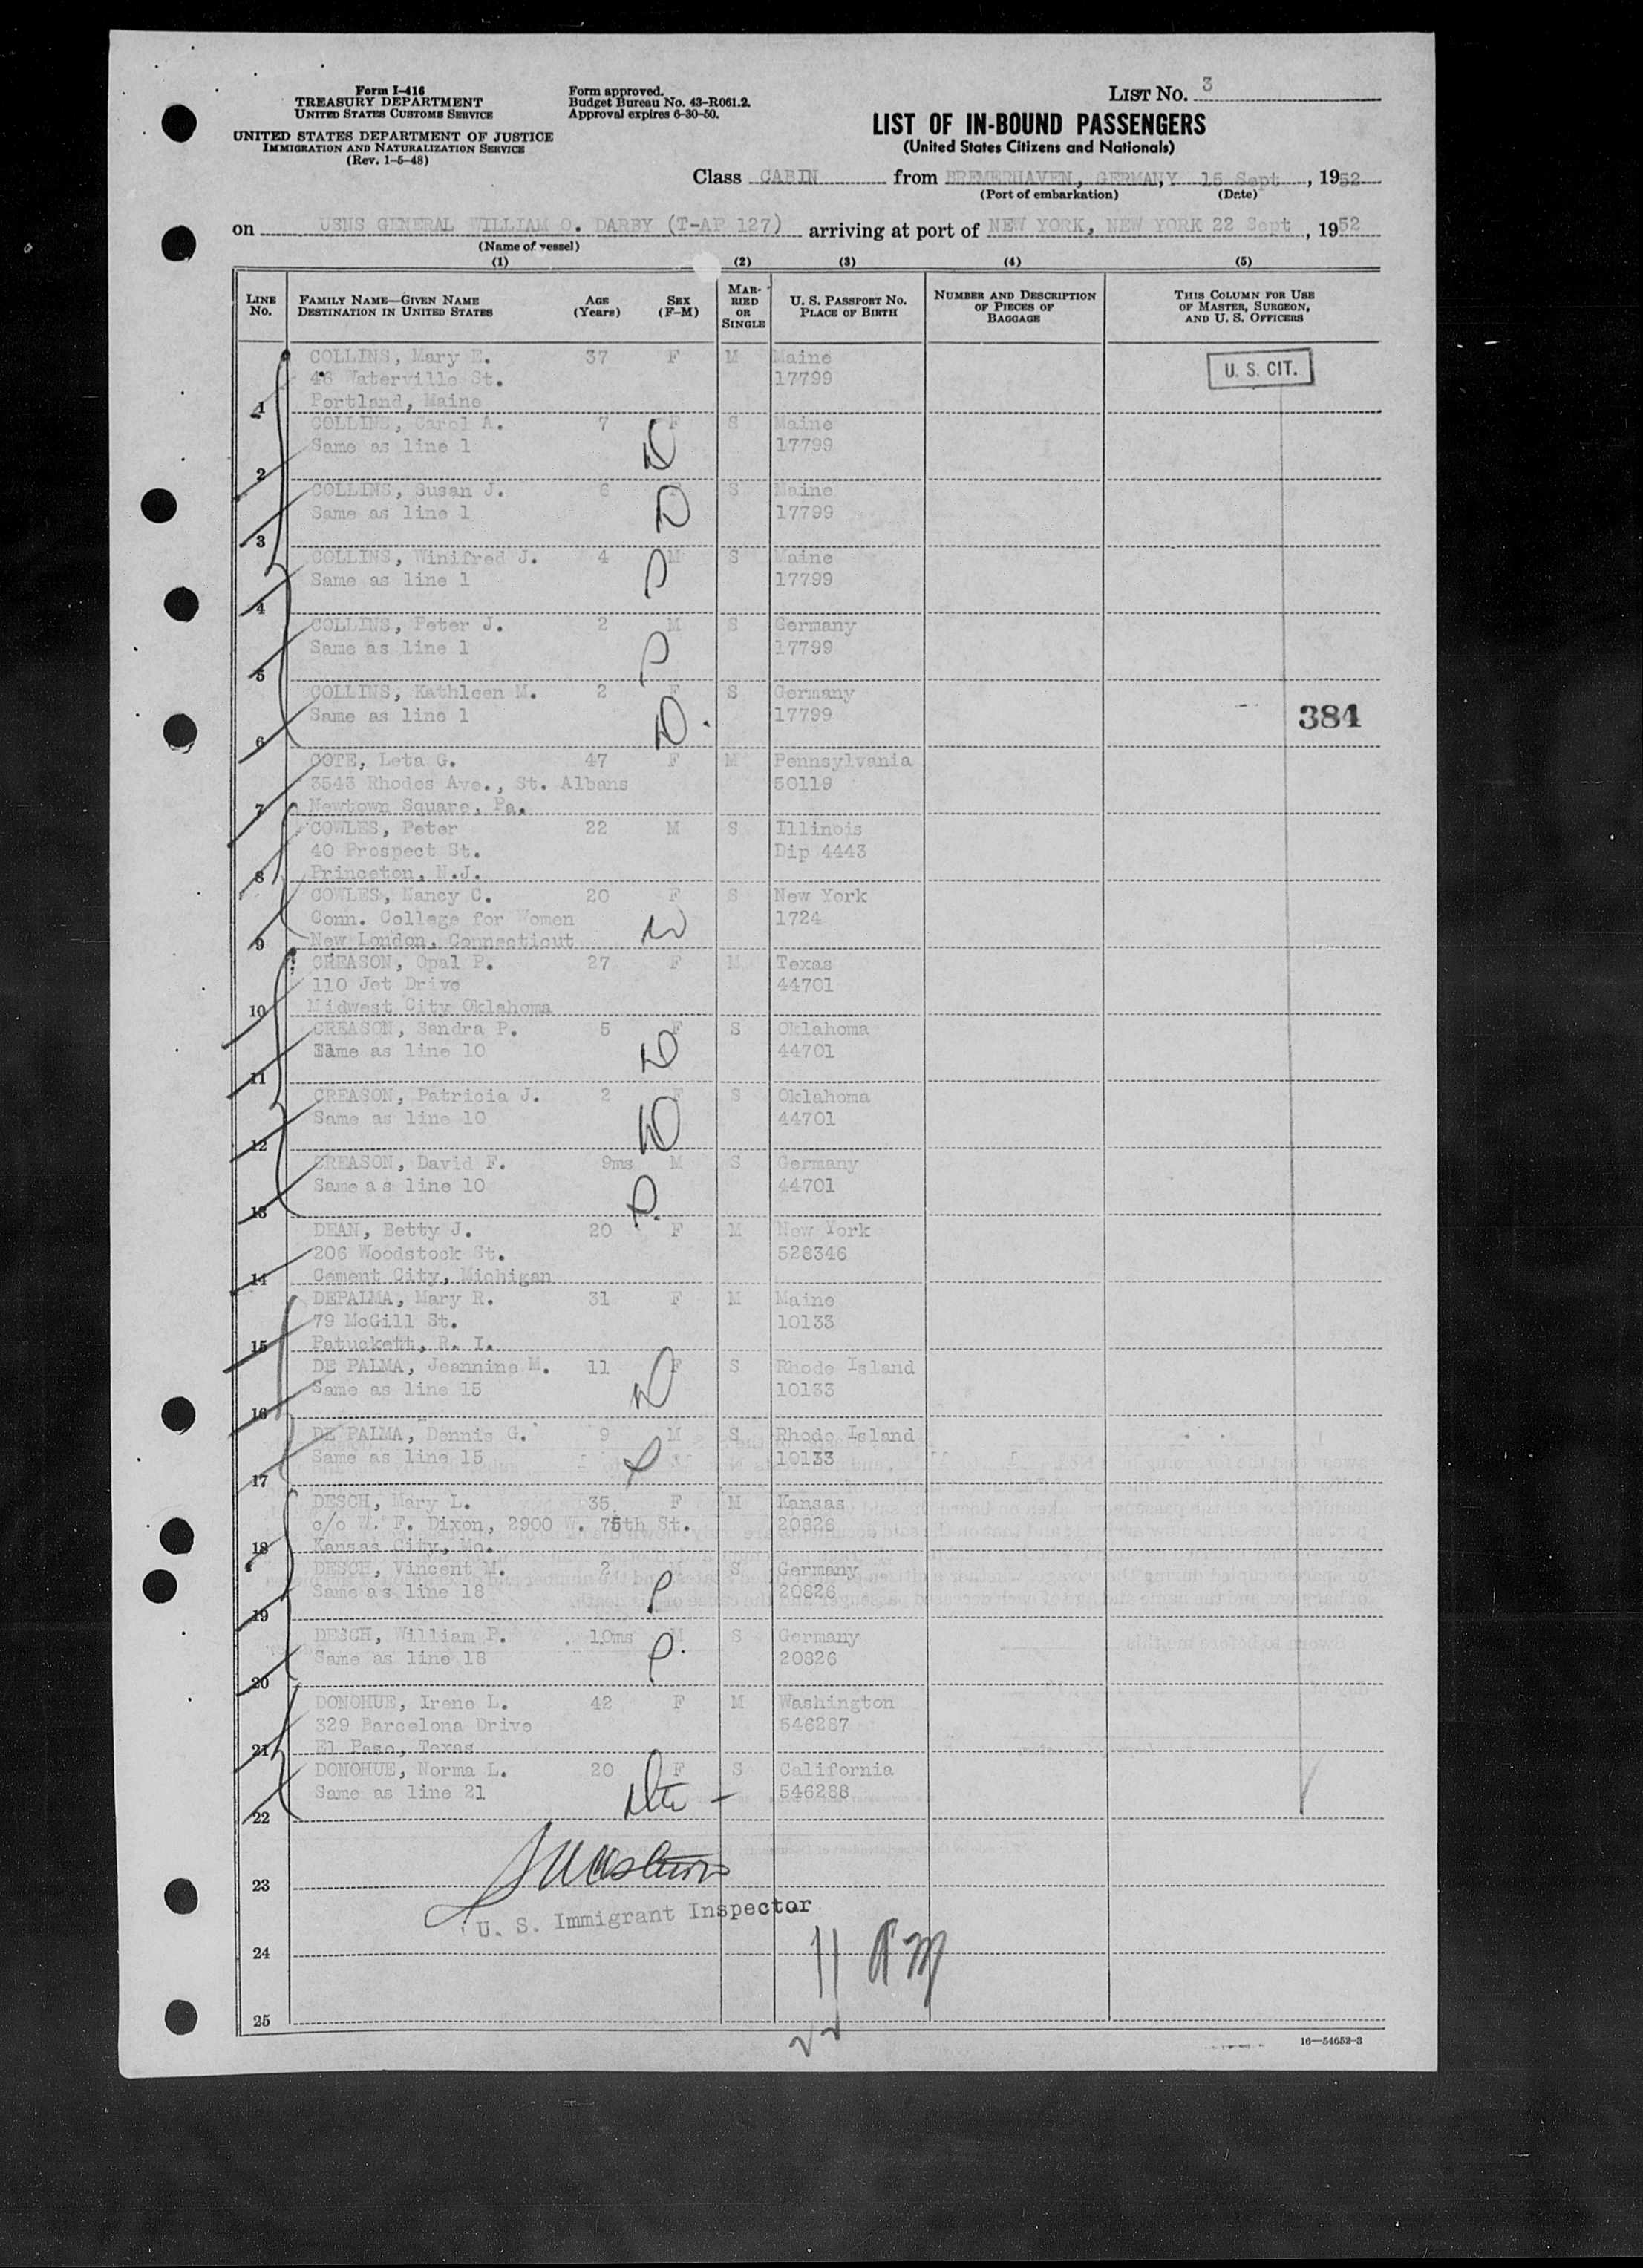 Form I-416
TREASURY DEPARTMENT
UNITED STATES CUSTOMS SERVICE
UNITED STATES DEPARTMENT OF JUSTICE
IMMIGRATION AND NATURALIZATION SERVICE
(Rev. 1-5-48)
Form approved.
Budget Bureau No. 43-R061.2.
Approval expires 6-30-50.
LIST No. 3
LIST OF IN-BOUND PASSENGERS
(United States Citizens and Nationals)
Class CABIN from BREMERHAVEN, GERMANY, 15 Sept, 1952
(Port of embarkation) (Date)
on USNS GENERAL WILLIAM O. DARBY (T-AP 127) arriving at port of NEW YORK, NEW YORK 22 Sept, 1952
(Name of vessel)
(1) (2) (3) (4) (5)
LINE No. FAMILY NAME—GIVEN NAME DESTINATION IN UNITED STATES AGE (Years) SEX (F-M) MARRIED OR SINGLE U. S. PASSPORT NO. PLACE OF BIRTH NUMBER AND DESCRIPTION OF PIECES OF BAGGAGE THIS COLUMN FOR USE OF MASTER, SURGEON, AND U. S. OFFICERS
COLLINS, Mary E. 37 F M Maine
46 Waterville St. 17799 U. S. CIT.
1 Portland, Maine
COLLINS, Carol A. 7 F S Maine
Same as line 1 17799
2
COLLINS, Susan J. 6 S Maine
Same as line 1 17799
3
COLLINS, Winifred J. 4 M S Maine
Same as line 1 17799
4
COLLINS, Peter J. 2 M S Germany
Same as line 1 17799
5
COLLINS, Kathleen M. 2 F S Germany
Same as line 1 17799 384
6
COTE, Leta G. 47 F M Pennsylvania
3543 Rhodes Ave., St. Albans 50119
7 Newtown Square, Pa.
COWLES, Peter 22 M S Illinois
40 Prospect St. Dip 4443
8 Princeton, N.J.
COWLES, Nancy C. 20 F S New York
Conn. College for Women 1724
9 New London, Connecticut
CREASON, Opal P. 27 F M Texas
110 Jet Drive 44701
10 Midwest City Oklahoma
CREASON, Sandra P. 5 F S Oklahoma
Same as line 10 44701
11
CREASON, Patricia J. 2 F S Oklahoma
Same as line 10 44701
12
CREASON, David F. 9ms M S Germany
Same as line 10 44701
13
DEAN, Betty J. 20 F M New York
206 Woodstock St. 528346
14 Cement City, Michigan
DEPALMA, Mary R. 31 F M Maine
79 McGill St. 10133
15 Patuckett, R. I.
DE PALMA, Jeannine M. 11 F S Rhode Island
Same as line 15 10133
16
DE PALMA, Dennis G. 9 M S Rhode Island
Same as line 15 10133
17
DESCH, Mary L. 35 F M Kansas
c/o W. F. Dixon, 2900 W. 75th St. 20826
18 Kansas City, Mo.
DESCH, Vincent M. 2 S Germany
Same as line 18 20826
19
DESCH, William P. 10ms M S Germany
Same as line 18 20826
20
DONOHUE, Irene L. 42 F M Washington
329 Barcelona Drive 546287
21 El Paso, Texas
DONOHUE, Norma L. 20 F S California
Same as line 21 546288
22
23
U. S. Immigrant Inspector
24
25
16—54652-3